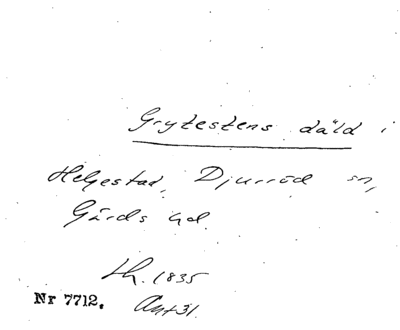 Grytestens däld i
Helgestad, Djurröd sn,
Gärds hd.
Lh. 1835
Nr 7712. Ant 31.